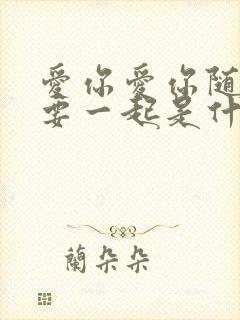 愛你愛你随
要一起是什
蘭朵朵